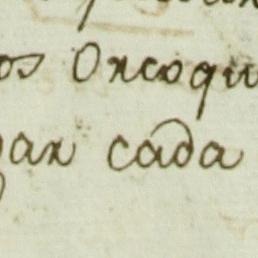 os Orcoqu
gar cada